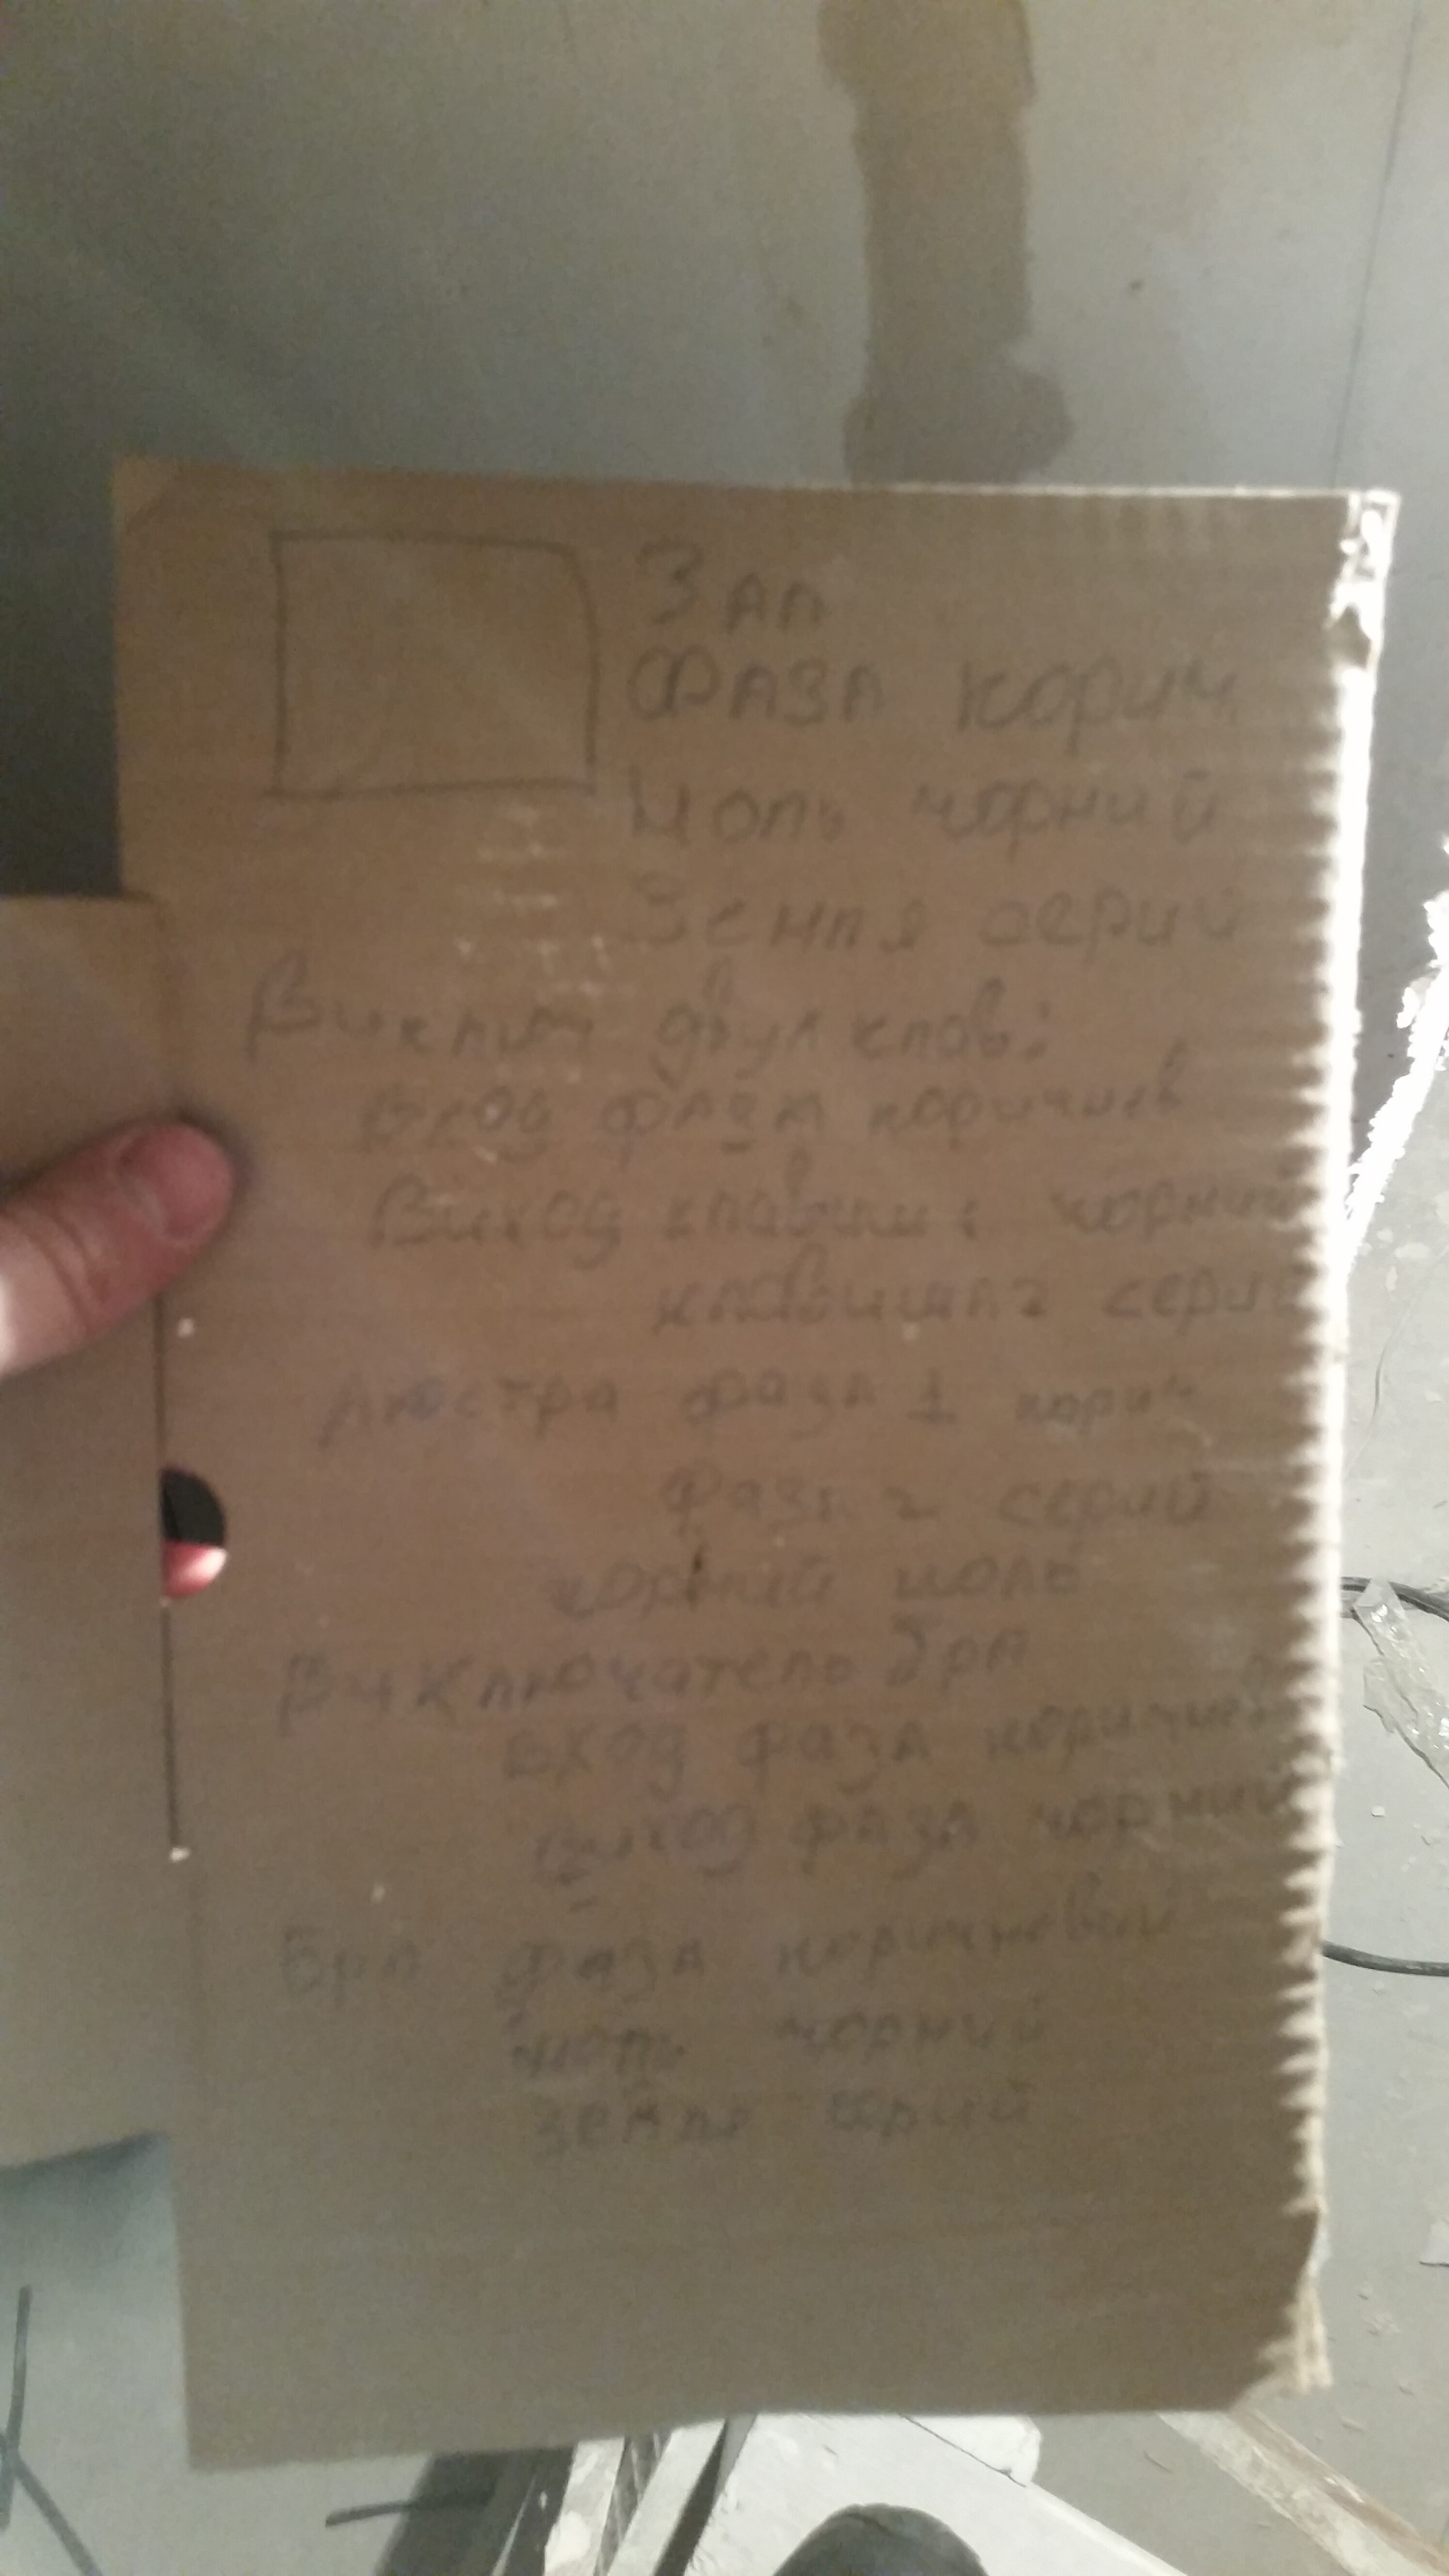 Зал
Фаза корич
Ноль чорний
Земля серий
Виключ двухклав:
Вход фаза коричнев
Виход клавиш 1 чорний
клавиша 2 серий
Люстра фаза 1 корич
фаза 2 серий
чорний ноль
Виключатель бра
вход фаза коричнев
виход фаза чорний
Бра фаза коричневий
ноль чорний
земля серий